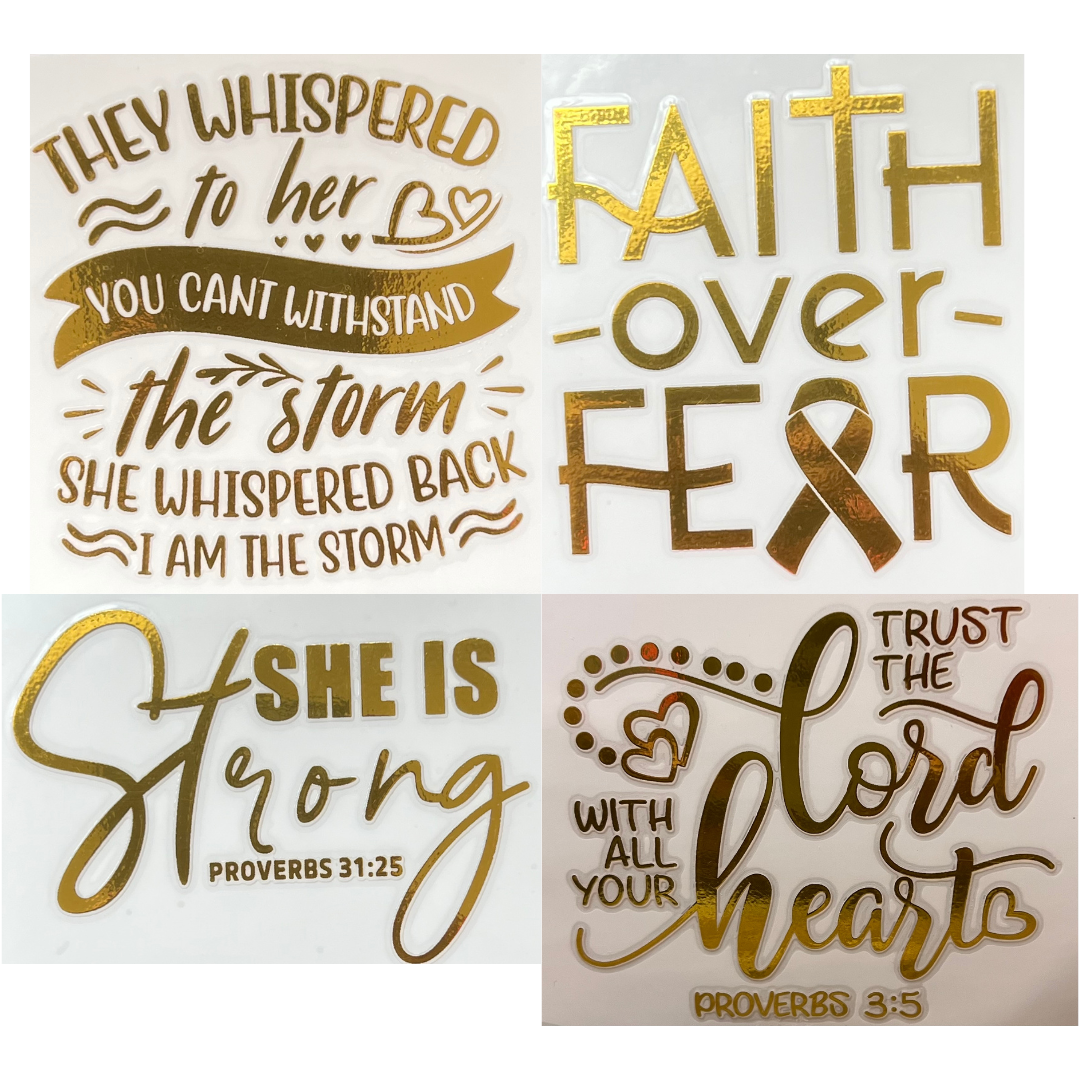 THEY WHISPERED
to her
YOU CANT WITHSTAND
the storm
SHE WHISPERED BACK
I AM THE STORM
FAITH
-over-
FEAR
SHE IS
Strong
PROVERBS 31:25
TRUST
THE
lord
WITH
ALL
YOUR
heart
PROVERBS 3:5